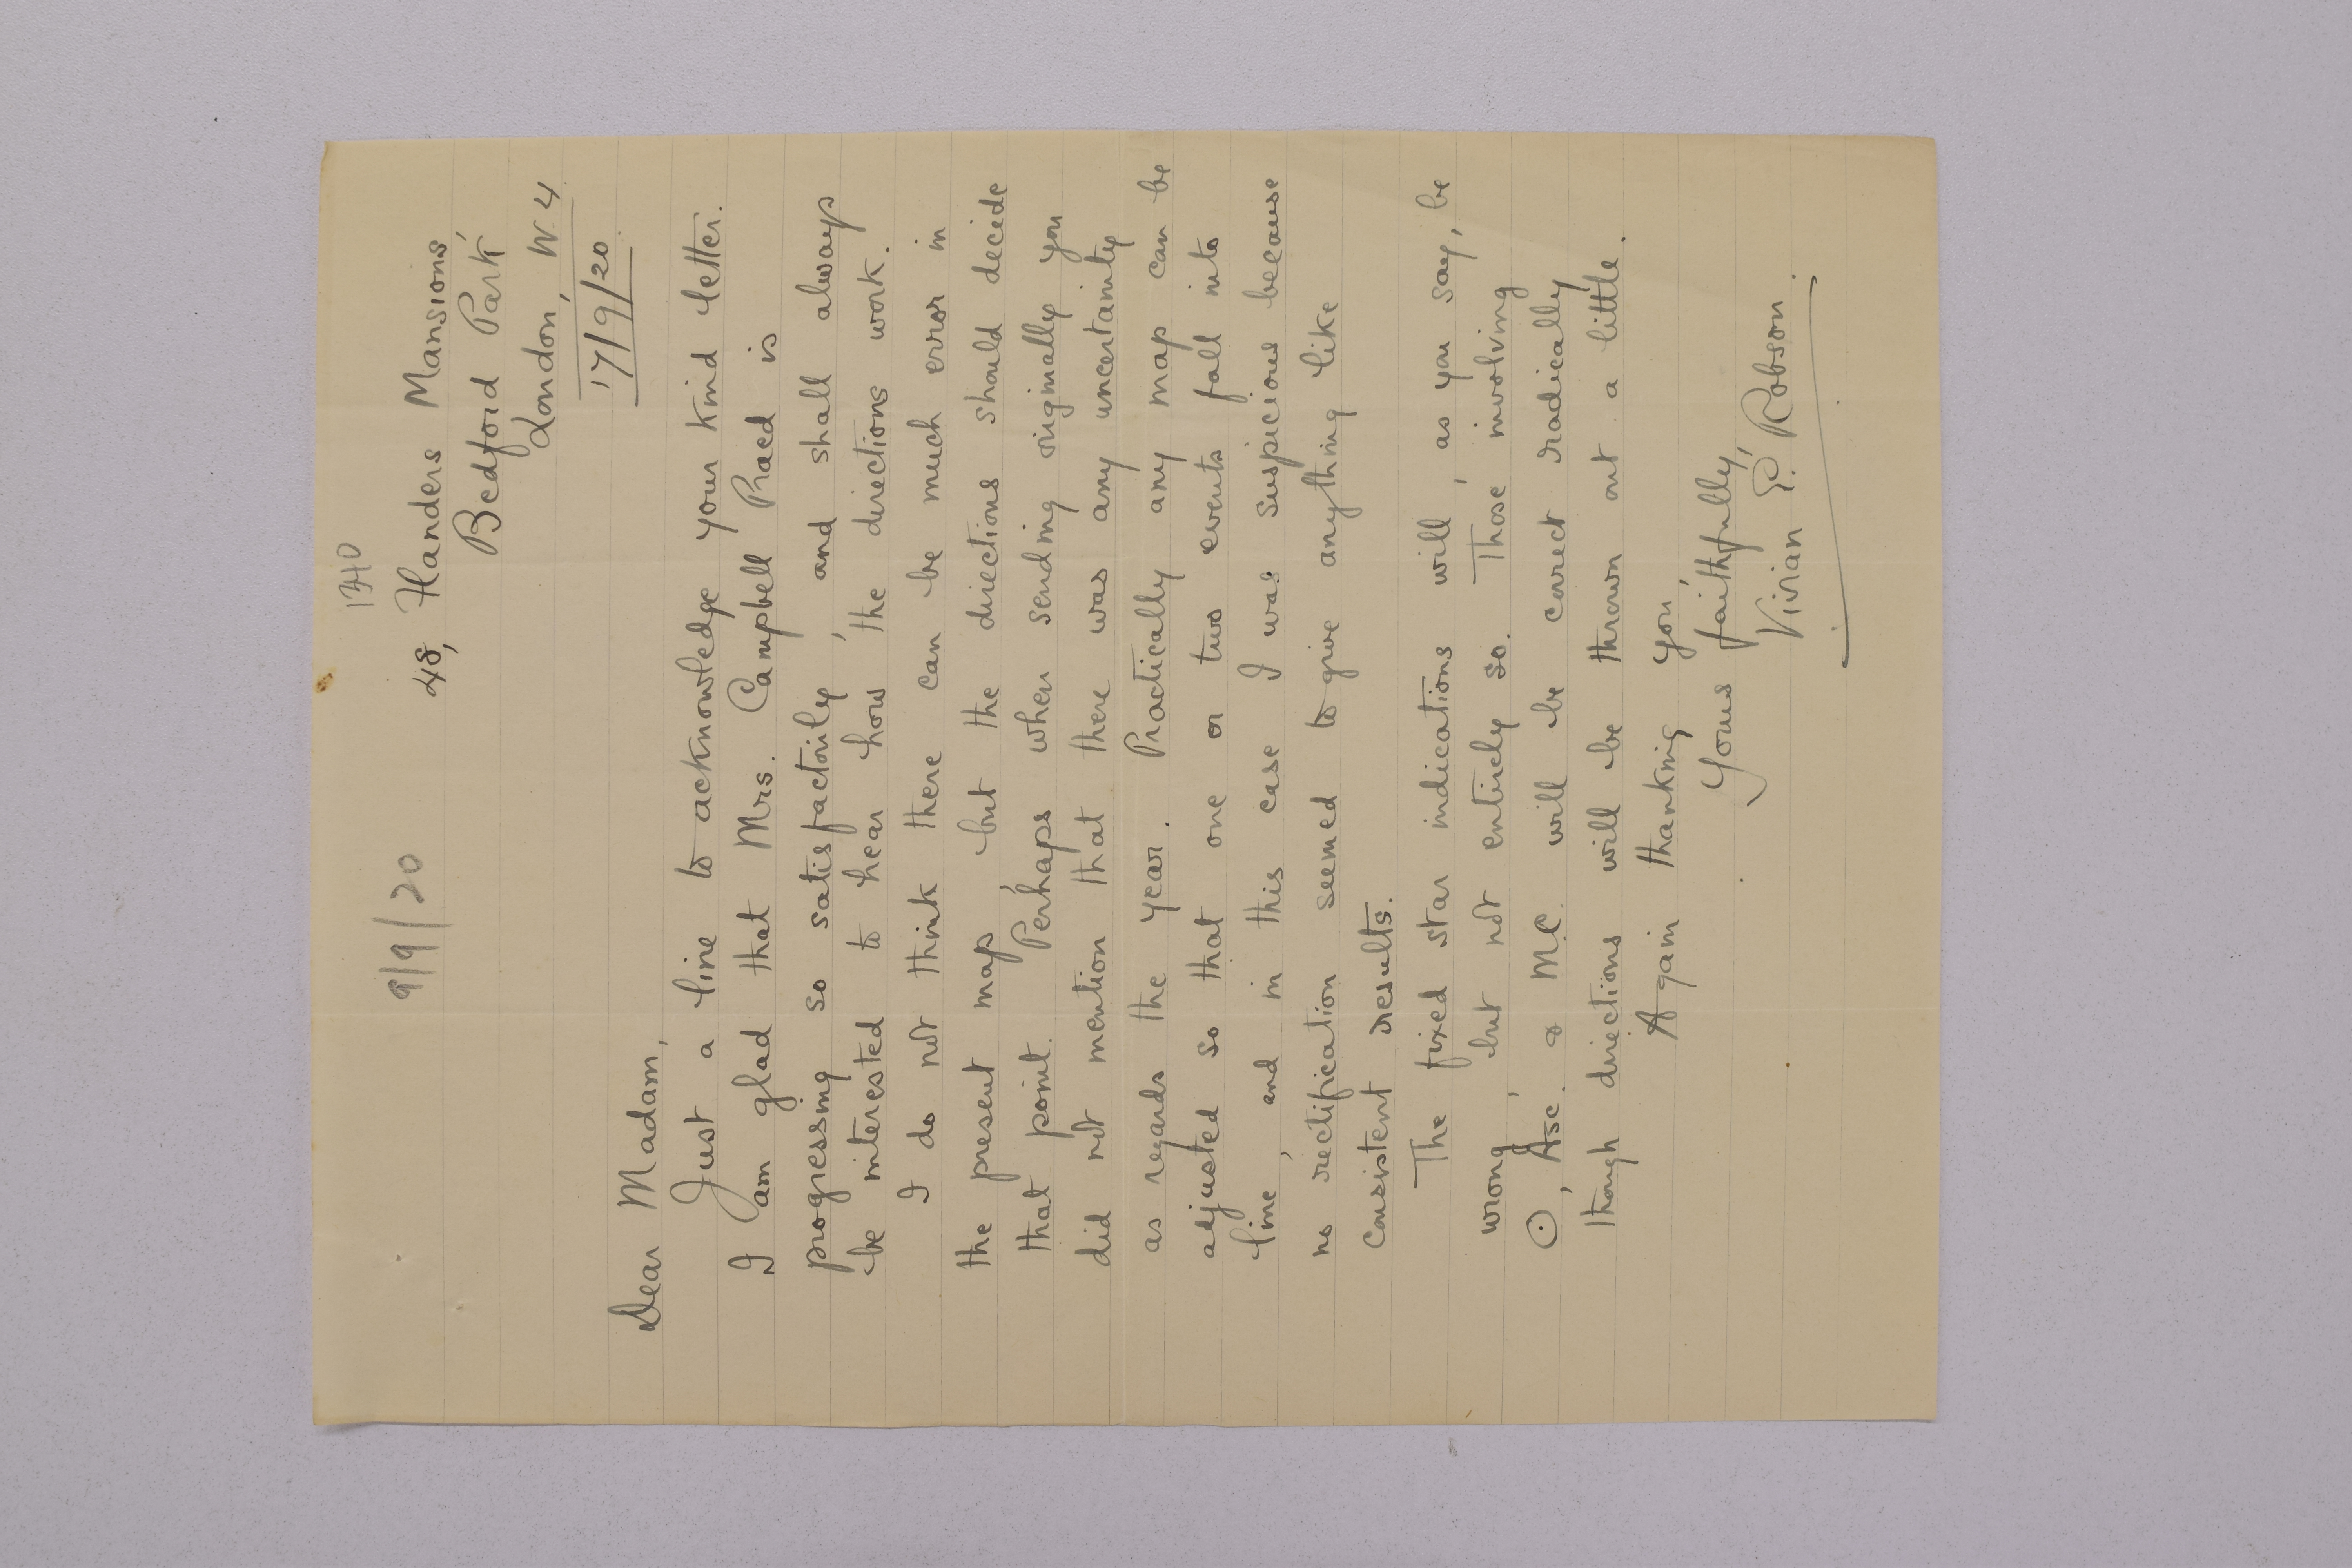 1340
9/9/20
48, Flanders Mansions,
Bedford Park,
London, W.4
17/9/20.
Dear Madam,
Just a line to acknowledge your kind letter.
I am glad that Mrs. Campbell Praed is
progressing so satisfactorily, and shall always
be interested to hear how the directions work.
I do not think there can be much error in
the present map, but the directions should decide
that point. Perhaps when sending originally you
did not mention that there was any uncertainty
as regards the year. Practically any map can be
adjusted so that one or two events fall into
line, and in this case I was suspicious because
no rectification seemed to give anything like
consistent results.
The fixed star indications will, as you say, be
wrong, but not entirely so. Those involving
☉, Asc. & M.C. will be correct radically
though directions will be thrown out a little.
Again thanking you,
Yours faithfully,
Vivian E. Robson.